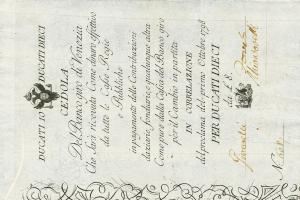 DUCATI 10 DUCATI DIECI
CEDOLA
Del Banco giro di Venezia
Che sarà ricevuta Come denaro effettivo
da tutte le Casse Regie
e Pubbliche
in pagamento delle Contribuzioni
daziarie, fondiarie e qualunque altra
Come pure dalla Cassa del Banco giro
per il Cambio in partita
IN CORRELAZIONE
del proclama del primo Ottobre 1798
PER DUCATI DIECI
da £ 8.